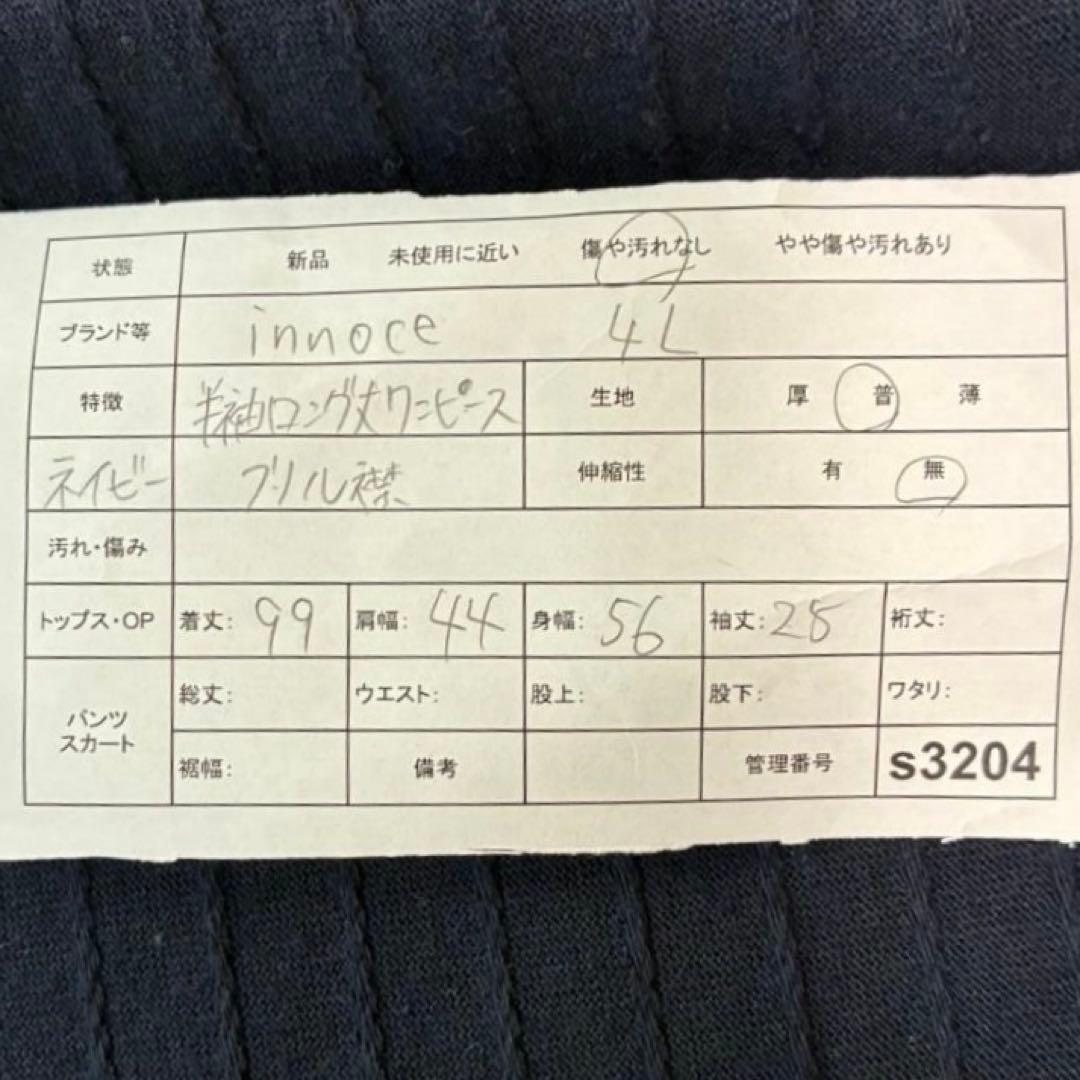 状態 新品 未使用に近い 傷や汚れなし やや傷や汚れあり
ブランド等 innoce 4L
特徴 半袖ロング丈ワンピース 生地 厚 普 薄
ネイビー フリル襟 伸縮性 有 無
汚れ・傷み
トップス・OP 着丈: 99 肩幅: 44 身幅: 56 袖丈: 25 裄丈:
パンツ 総丈: ウエスト: 股上: 股下: ワタリ:
スカート
裾幅: 備考 管理番号 s3204